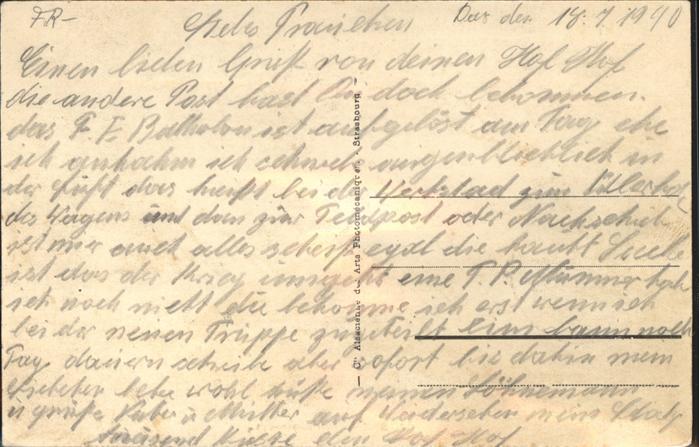 FR-
Liebes Frauchen Das den 18.7.1940
Einen lieben Gruß von deinen Hof Hof
die andere Post hast Du doch bekommen.
das F E Battalion ist aufgelöst am Tag ehe
ich ankahm ich schwebe augenblicklich in
der Luft das heißt bei der Werkstad zum
des Wagens und dan zur Feldpost oder Nachschub
ist mir auch alles egal die haubt
ist das der Krieg eine F. P. Nummer habe
ich noch nicht die bekomme ich erst wenn ich
bei der neuen Truppe zugeteilt bin kann noch
Tag dauern schreibe aber sofort bis dahin mein
Liebchen lebe wohl Küße meinen Söhnemann
u grüße Vater u Mutter auf Wiedersehen mein
tausend Küsse dein Hof Hof
— Cie Alsacienne des Arts Photomécaniques, Strasbourg —